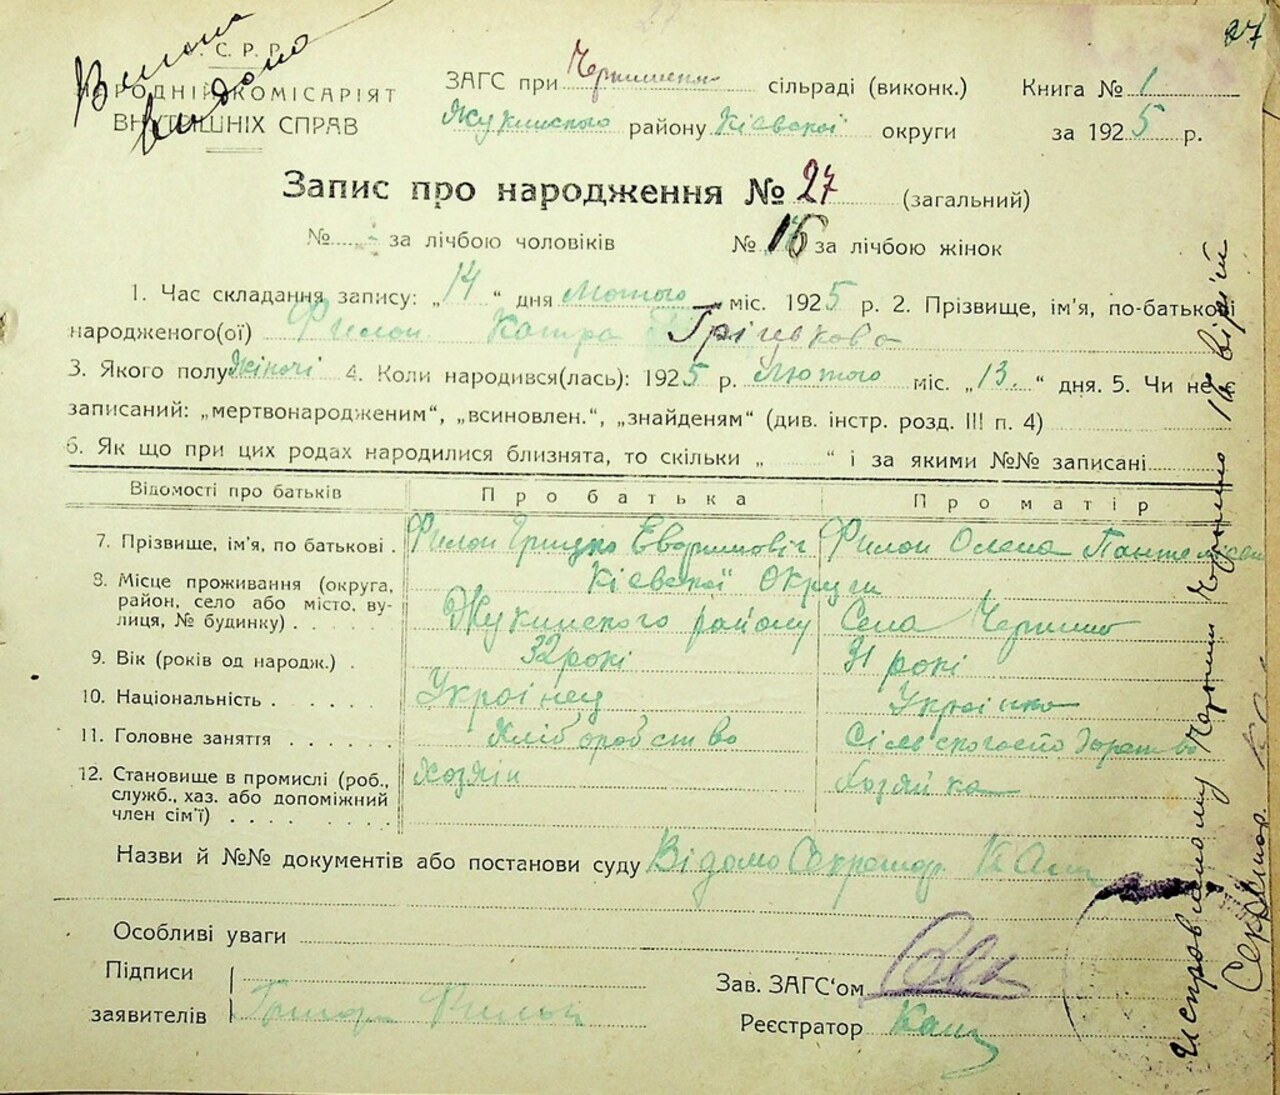 27
Виписи видано
С. Р. Р.
НАРОДНІЙ КОМІСАРІЯТ
ВНУТРІШНІХ СПРАВ
ЗАГС при сільраді (виконк.)
Жукинского району Кіевскої округи
Книга № 1
за 1925 р.
Запис про народження № 27 (загальний)
№ за лічбою чоловіків № 16 за лічбою жінок
1. Час складання запису: „14“ дня Лютого міс. 1925 р. 2. Прізвище, ім'я, по-батькові
народженого(ої) Филон Катра Гріцькова
3. Якого полу Жіночі 4. Коли народився(лась): 1925 р. Лютого міс. „13.“ дня. 5. Чи не є
записаний: „мертвонародженим“, „всиновлен.“, „знайденям“ (див. інстр. розд. III п. 4)
6. Як що при цих родах народилися близнята, то скільки „ “ і за якими №№ записані
Відомості про батьків Про батька Про матір
7. Прізвище, ім'я, по батькові . Филон Грицко Филон Олена
8. Місце проживання (округа, Кіевскої Округи
район, село або місто, ву- Жукинского району Села Чернино
лиця, № будинку) . . . .
9. Вік (років од народж.) . 32 рокі 31 рокі
10. Національність . . . . . Українец Українка
11. Головне заняття . . . . . . Хлібороbство
12. Становище в промислі (роб., Хозяін Хозяйка
служб., хаз. або допоміжний
член сім'ї) . . . . . . . .
Назви й №№ документів або постанови суду Відомо Секретар
Особливі уваги
Підписи
заявителів Филон
Зав. ЗАГС‘ом
Реєстратор
Исправленому Чорним Чорнило вірить
Секретар